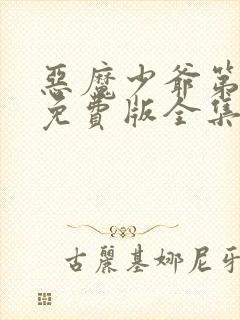 惡魔少爺第
免費版全集
古麗基娜尼牙